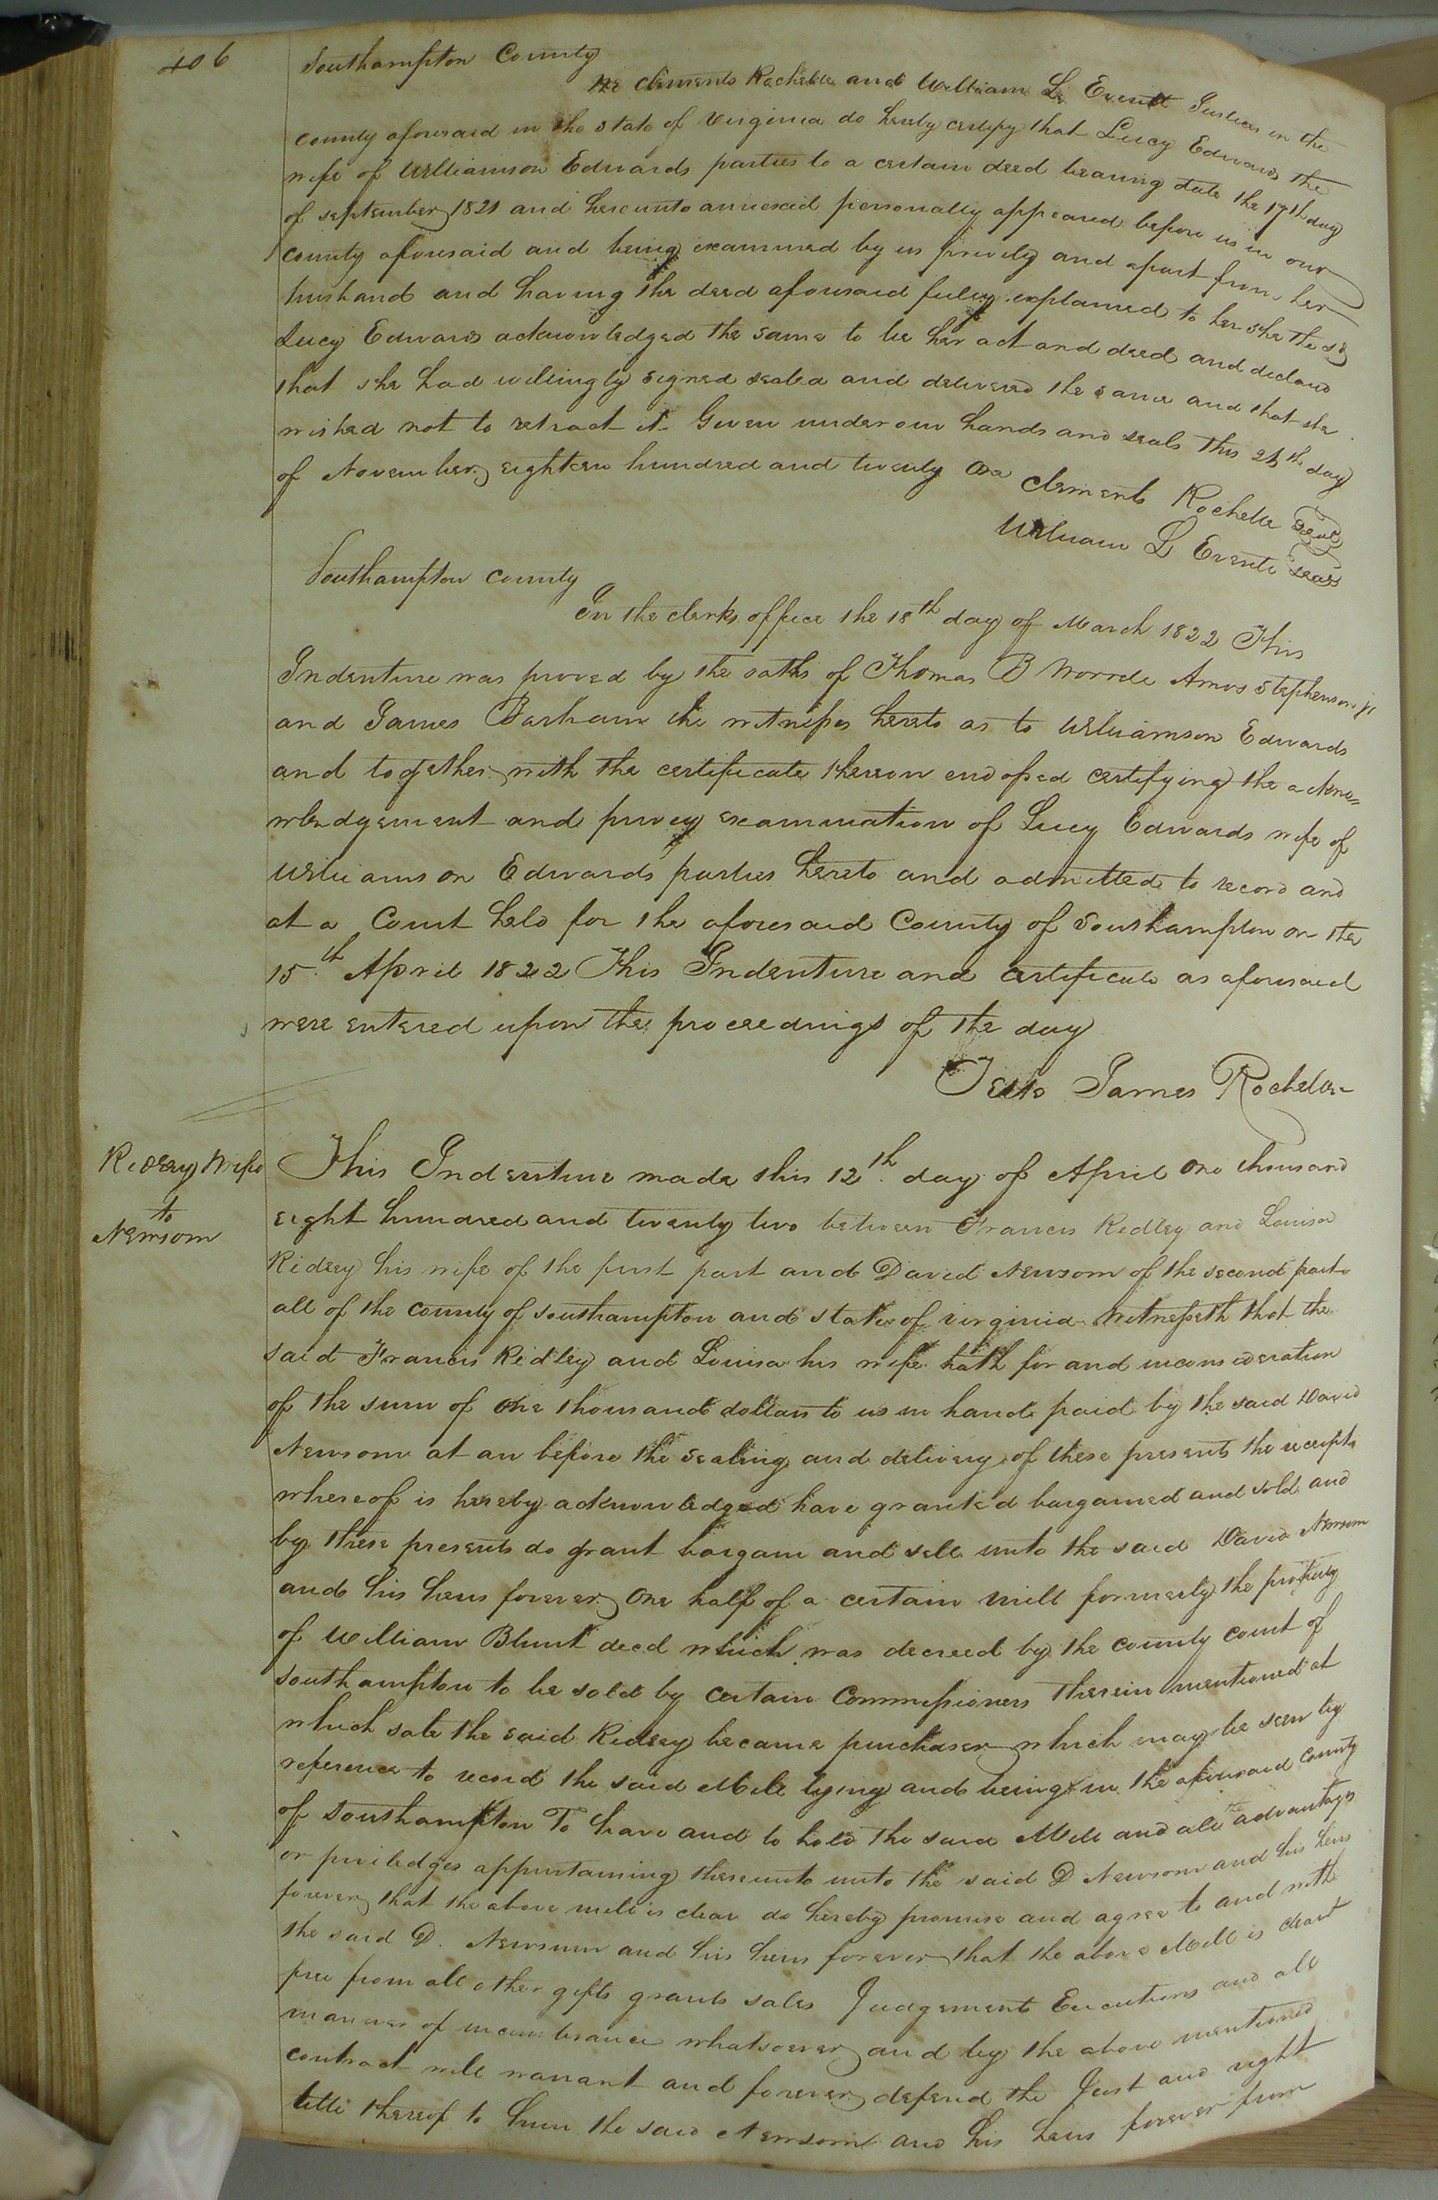 406
Southampton County
We Clements Rochelle and William L. Everett Justices in the
county aforesaid in the state of Virginia do hereby certify that Lucy Edwards the
wife of Williamson Edwards parties to a certain deed bearing date the 17th day
of september 1821 and hereunto annexed personally appeared before us in our
county aforesaid and being examined by us privily and apart from her
husband and having the deed aforesaid fully explained to her she the sd
Lucy Edwards acknowledged the same to be her act and deed and declared
that she had willingly signed sealed and delivered the same and that she
wished not to retract it Given under our hands and seals this day
of November eighteen hundred and twenty One
Clements Rochelle Seal
William L Everett Seal
Southampton county
In the clerks office the 18th day of March 1822 This
Indenture was proved by the oaths of Thomas B Amos Stephenson jr
and James Barham the witnesses hereto as to Williamson Edwards
and together with the certificate thereon endorsed certifying the ackno=
wlendgement and privey examination of Lucy Edwards wife of
Williamson Edwards parties hereto and admitted to record and
at a Court held for the aforesaid County of Southampton on the
15.th April 1822 This Indenture and certificate as aforesaid
were entered upon the proceedings of the day
Teste James Rochelle
Ridley Wife
to
Newsom
This Indenture made this 12th day of April one thousand
eight hundred and twenty two between Francis Ridley and Louisa
Ridley his wife of the first part and David Newsom of the second part
all of the county of southampton and state of virginia Witnesseth that the
said Francis Ridley and Louisa his wife hath for and in consideration
of the sum of one thousand dollars to us in hand paid by the said David
Newsom at an before the sealing and delivery of these presents the receipt
whereof is hereby acknowledged have granted bargained and sold and
by these presents do grant bargain and sell unto the said David Newsom
and his heirs forever One half of a certain mill formerly the property
of William Blunt decd which was decreed by the county court of
Southampton to be sold by certain Commissioners therein mentioned at
which sale the said Ridley became purchaser which may be seen by
reference to record the said Mill lying and being in the aforesaid County
of Southampton To have and to hold the said Mill and all the advantages
or priviledges appertaining thereunto unto the said D Newsom and his heirs
forever that the above mill is clear do hereby promise and agree to and with
the said D. Newsum and his heirs forever that the above Mill is clear &
free from all other gifts grants sales Judgements Executions and all
manner of incumbrance whatsoever and by the above mentioned
contract will warrant and forever defend the Just and right
title thereof to him the said Newsom and his heirs forever from